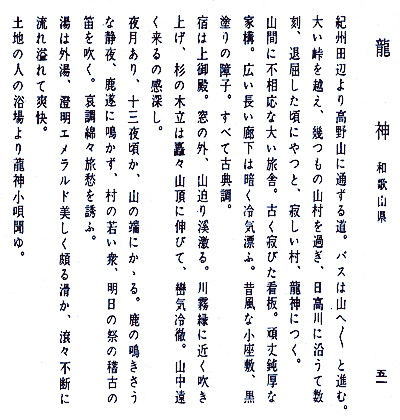 龍神 和歌山県 五一
紀州田辺より高野山に通ずる道。バスは山へ〱と進む。
大い峠を越え、幾つもの山村を過ぎ、日高川に沿うて数
刻、退屈した頃にやつと、寂しい村、龍神につく。
山間に不相応な大い旅舎。古く寂びた看板。頑丈鈍厚な
家構。広い長い廊下は暗く冷気漂ふ。昔風な小座敷、黒
塗りの障子。すべて古典調。
宿は上御殿。窓の外、山迫り渓激る。川霧縁に近く吹き
上げ、杉の木立は矗々山頂に伸びて、巒気冷徹。山中遠
く来るの感深し。
夜月あり、十三夜頃か、山の端にかゝる。鹿の鳴きさう
な静夜、鹿遂に鳴かず、村の若い衆、明日の祭の稽古の
笛を吹く。哀調綿々旅愁を誘ふ。
湯は外湯、澄明エメラルド美しく頗る滑か、滾々不断に
流れ溢れて爽快。
土地の人の浴場より龍神小唄聞ゆ。